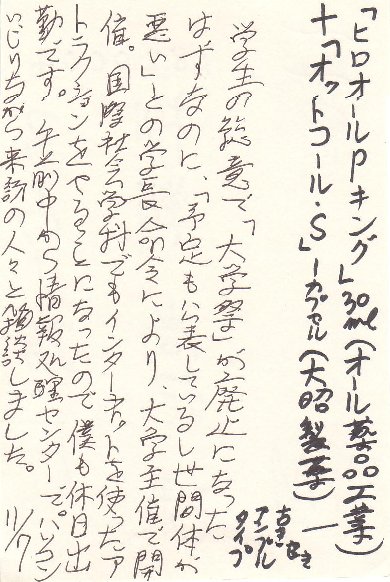 「ヒロオールPキング」30ml(オール薬品工業)
+「オットコール・S」1カプセル(大昭製薬)
古き良き
アンプル
タイプ
学生の総意で「大学祭」が廃止になった
はずなのに、「予定も公表しているし世間体が
悪い」との学長命令により、大学主催で開
催。国際社会学科でもインターネットを使ったア
トラクションをやることになったので僕も休日出
勤です。午前中から情報処理センターで。パソコン
いじりながら来訪の人々と雑談しました。
11/7